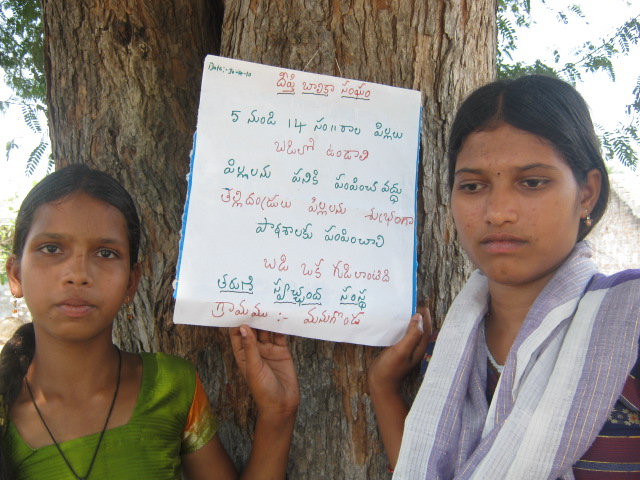 Date:-30-10-10
దీప్తి బాలికా సంఘం
5 నుండి 14 సం॥రాల పిల్లలు
బడిలో ఉండాలి
పిల్లలను పనికి పంపించవద్దు
తల్లిదండ్రులు పిల్లలను శుభ్రంగా
పాఠశాలకు పంపించాలి
బడి ఒక గుడిలాంటిది
తరుణి స్వచ్ఛంద సంస్థ
గ్రామము :- మనుగొండ